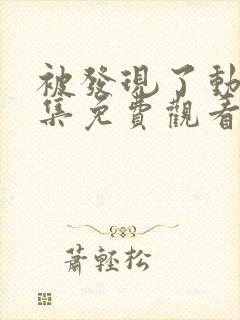 被發現了動
集免費觀看
蕭輕松